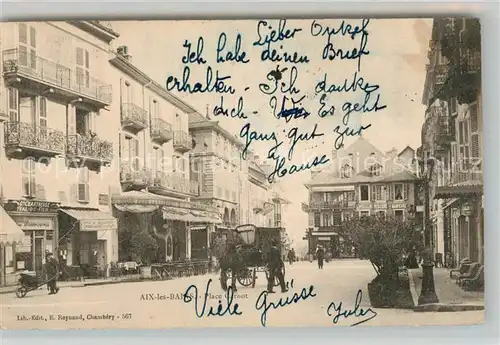 Lieber Onkel
Ich habe deinen Brief
erhalten. Ich danke
dich. Es geht
Ganz gut zur
Hause
AIX-les-BAINS - Place Carnot
Viele Grüsse July
Lib.-Edit., E. Reynaud, Chambéry - 567